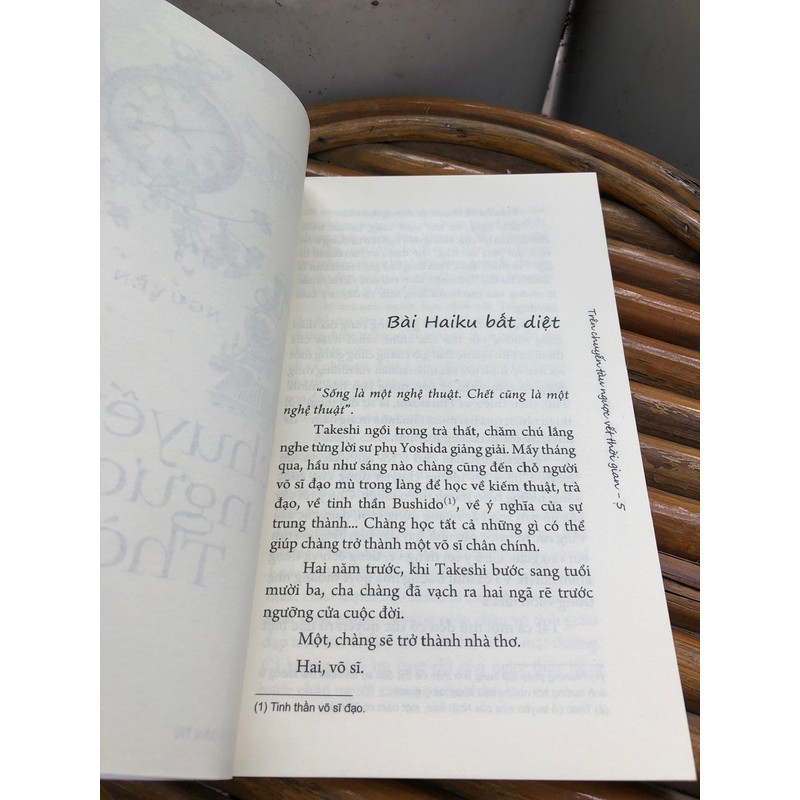 NGUYỄN
Bài Haiku bất diệt
“Sống là một nghệ thuật. Chết cũng là một
nghệ thuật”.
Takeshi ngồi trong trà thất, chăm chú lắng
nghe từng lời sư phụ Yoshida giảng giải. Mấy tháng
qua, hầu như sáng nào chàng cũng đến chỗ người
võ sĩ đạo mù trong làng để học về kiếm thuật, trà
đạo, về tinh thần Bushido(1), về ý nghĩa của sự
trung thành... Chàng học tất cả những gì có thể
giúp chàng trở thành một võ sĩ chân chính.
Hai năm trước, khi Takeshi bước sang tuổi
mười ba, cha chàng đã vạch ra hai ngã rẽ trước
ngưỡng cửa cuộc đời.
Một, chàng sẽ trở thành nhà thơ.
Hai, võ sĩ.
(1) Tinh thần võ sĩ đạo.
Trên chuyến tàu ngược vết thời gian - 5